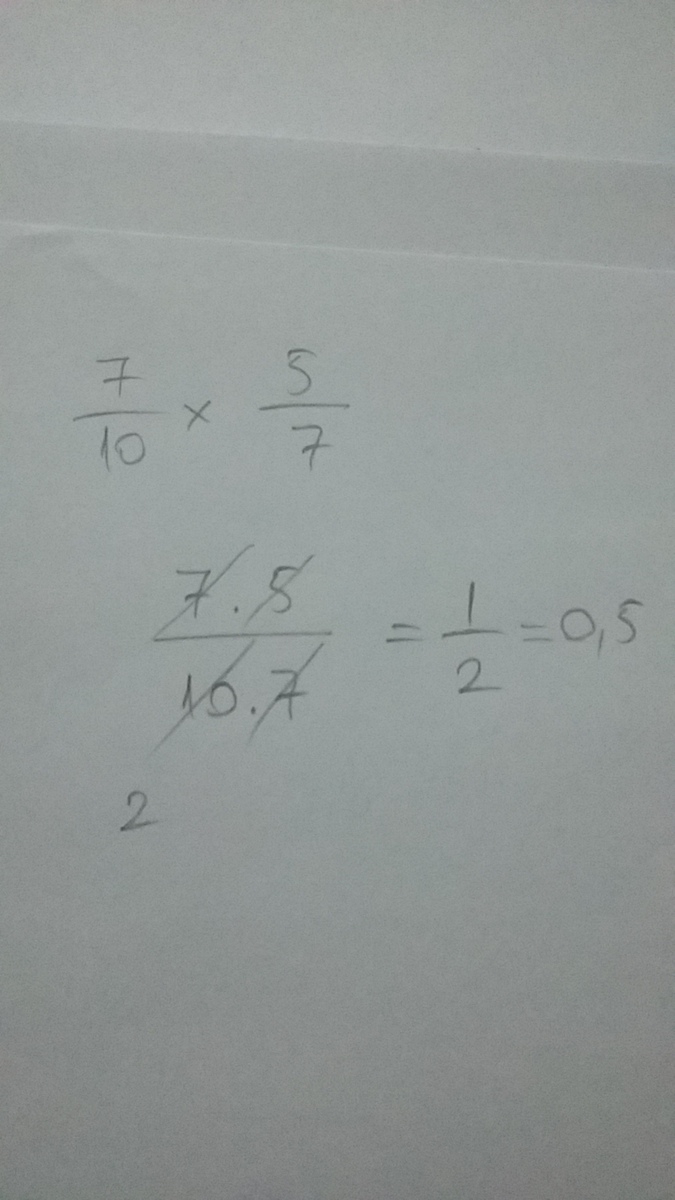 7/10 × 5/7
7 . 5 / 10 . 7 = 1/2 = 0,5
2